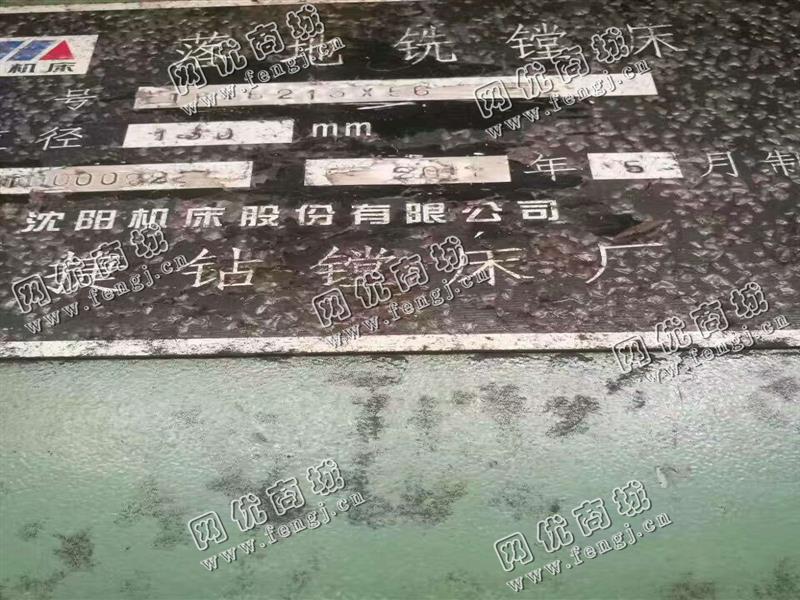 机床 落地铣镗床
号 6213×
径 130 mm
10003 201 年 5 月 制
沈阳机床股份有限公司
钻镗床厂
网优商城
www.fengj.cn
网优商城
www.fengj.cn
网优商城
www.fengj.cn
网优商城
www.fengj.cn
网优商城
www.fengj.cn
网优商城
www.fengj.cn
网优商城
www.fengj.cn